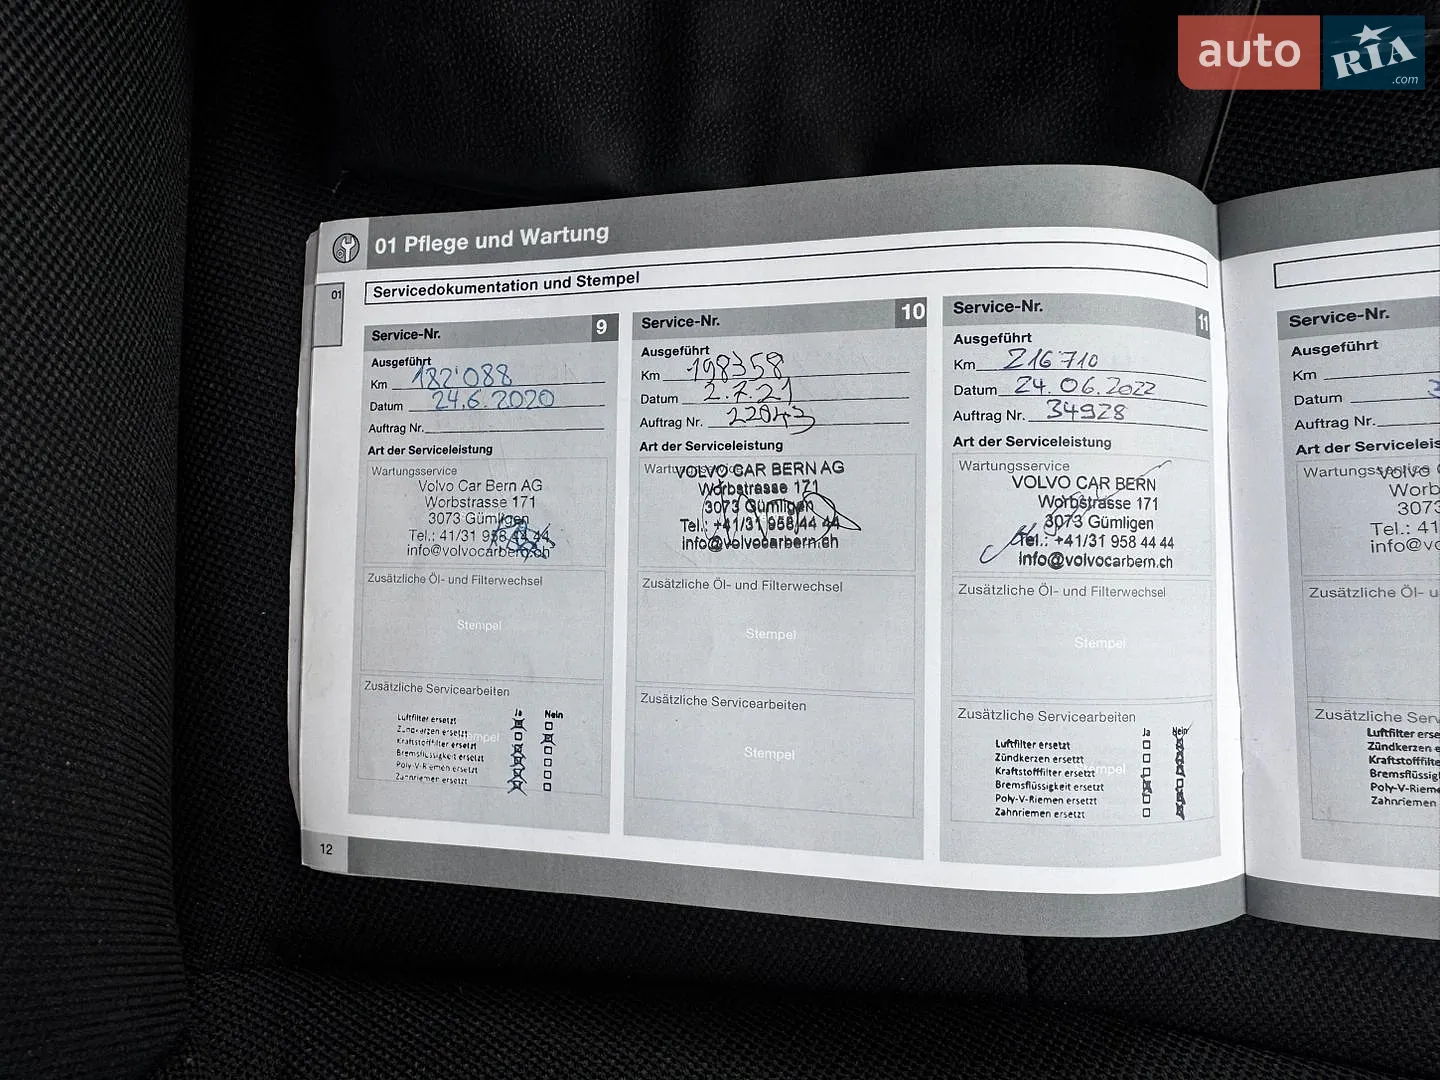 auto RIA .com
01 Pflege und Wartung
01
Servicedokumentation und Stempel
Service-Nr. 9
Ausgeführt
Km 182'088
Datum 24.6.2020
Auftrag Nr.
Art der Serviceleistung
Wartungsservice
Volvo Car Bern AG
Worbstrasse 171
3073 Gümligen
Tel.: 41/31 958 44 44
info@volvocarbern.ch
Zusätzliche Öl- und Filterwechsel
Stempel
Zusätzliche Servicearbeiten
Ja Nein
Luftfilter ersetzt
Zündkerzen ersetzt
Kraftstoffilter ersetzt
Bremsflüssigkeit ersetzt
Poly-V-Riemen ersetzt
Zahnriemen ersetzt
12
Service-Nr. 10
Ausgeführt
Km 198358
Datum 2.7.21
Auftrag Nr. 22043
Art der Serviceleistung
Wartungsservice
VOLVO CAR BERN AG
Worbstrasse 171
3073 Gümligen
Tel.: +41/31 958 44 44
info@volvocarbern.ch
Zusätzliche Öl- und Filterwechsel
Stempel
Zusätzliche Servicearbeiten
Stempel
Service-Nr. 11
Ausgeführt
Km 216'710
Datum 24.06.2022
Auftrag Nr. 34928
Art der Serviceleistung
Wartungsservice
VOLVO CAR BERN
Worbstrasse 171
3073 Gümligen
Tel.: +41/31 958 44 44
info@volvocarbern.ch
Zusätzliche Öl- und Filterwechsel
Stempel
Zusätzliche Servicearbeiten
Ja Nein
Luftfilter ersetzt
Zündkerzen ersetzt
Kraftstofffilter ersetzt
Bremsflüssigkeit ersetzt
Poly-V-Riemen ersetzt
Zahnriemen ersetzt
Service-Nr.
Ausgeführt
Km
Datum
Auftrag Nr.
Art der Serviceleis
Wartungsservice
Volvo C
Worb
3073
Tel.: 41
info@vo
Zusätzliche Öl- u
Zusätzliche Serv
Luftfilter erse
Zündkerzen e
Kraftstofffilte
Bremsflüssig
Poly-V-Rieme
Zahnriemen e